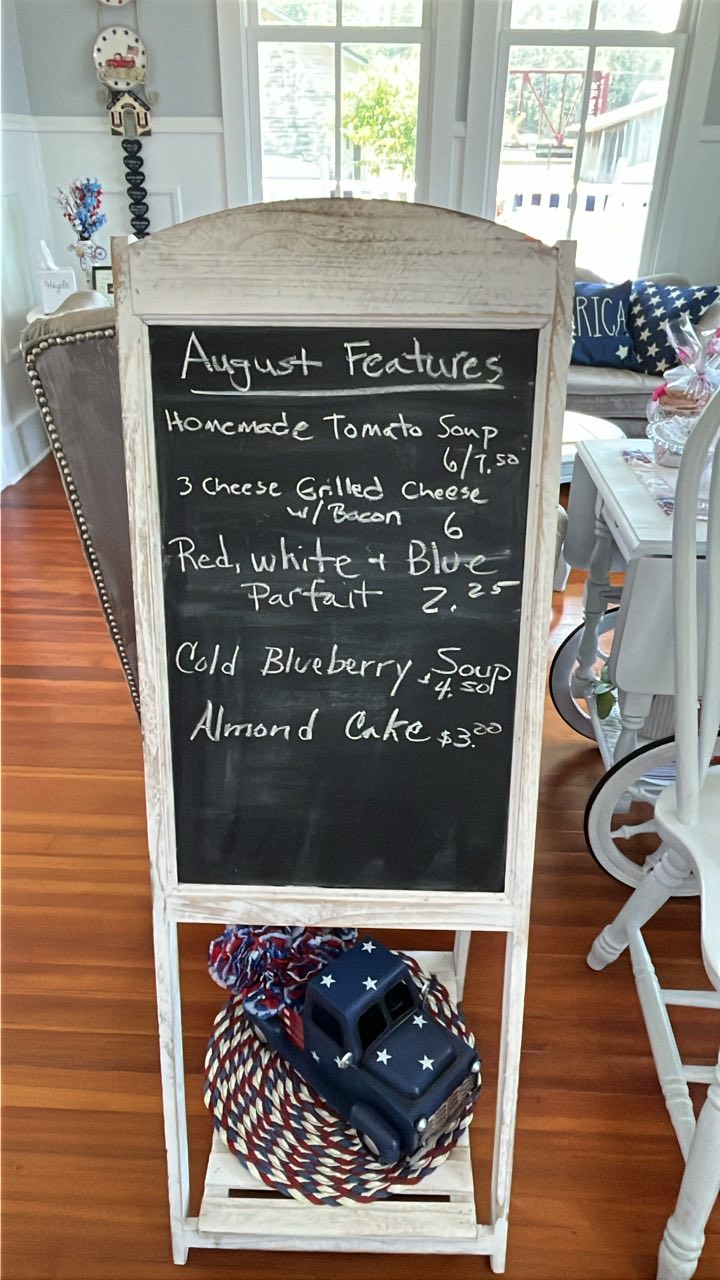 August Features
Homemade Tomato Soup
6/7.50
3 Cheese Grilled Cheese
w/Bacon 6
Red, white + Blue
Parfait 2.25
Cold Blueberry Soup
$4.50
Almond Cake $3.00
RICA